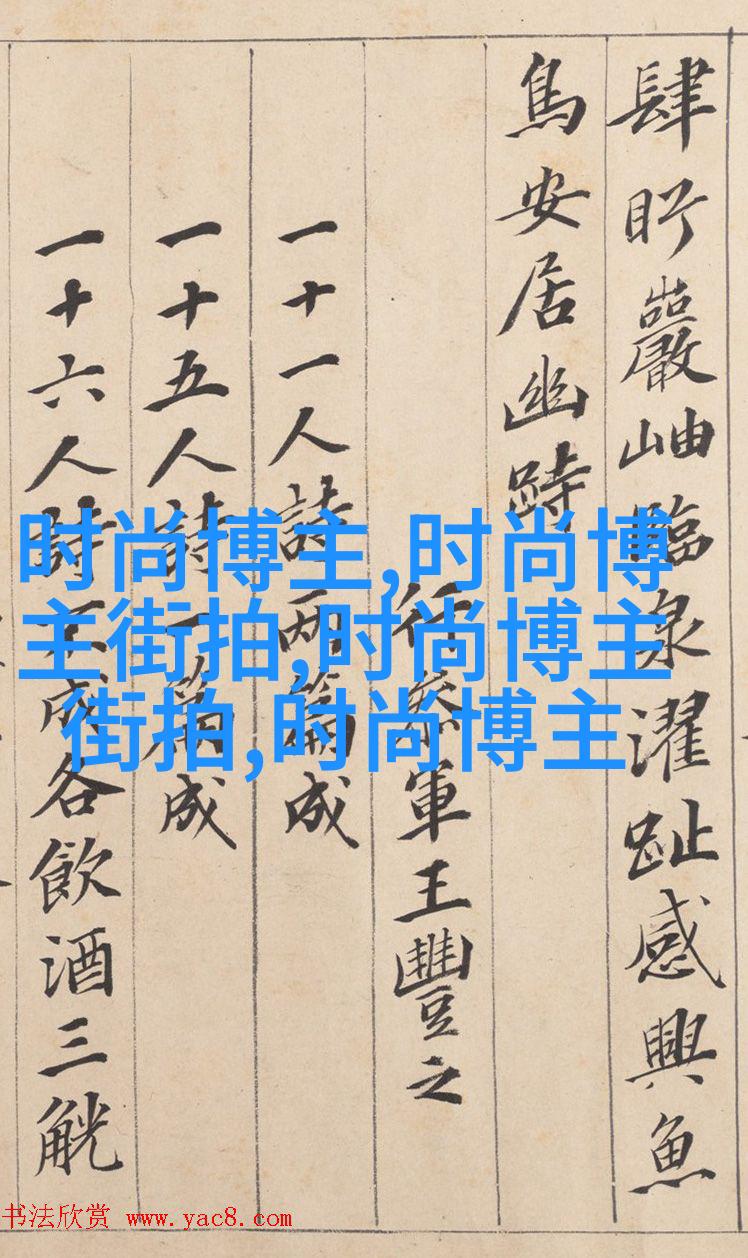 肆盱巖岫臨泉濯趾感興魚
鳥安居幽跱
行叅軍王豐之
一十一人詩兩篇成
一十五人詩一篇成
一十六人詩不成各飲酒三觥
时尚博主,时尚博
主街拍,时尚博主
街拍,时尚博主
书法欣赏 www.yac8.com